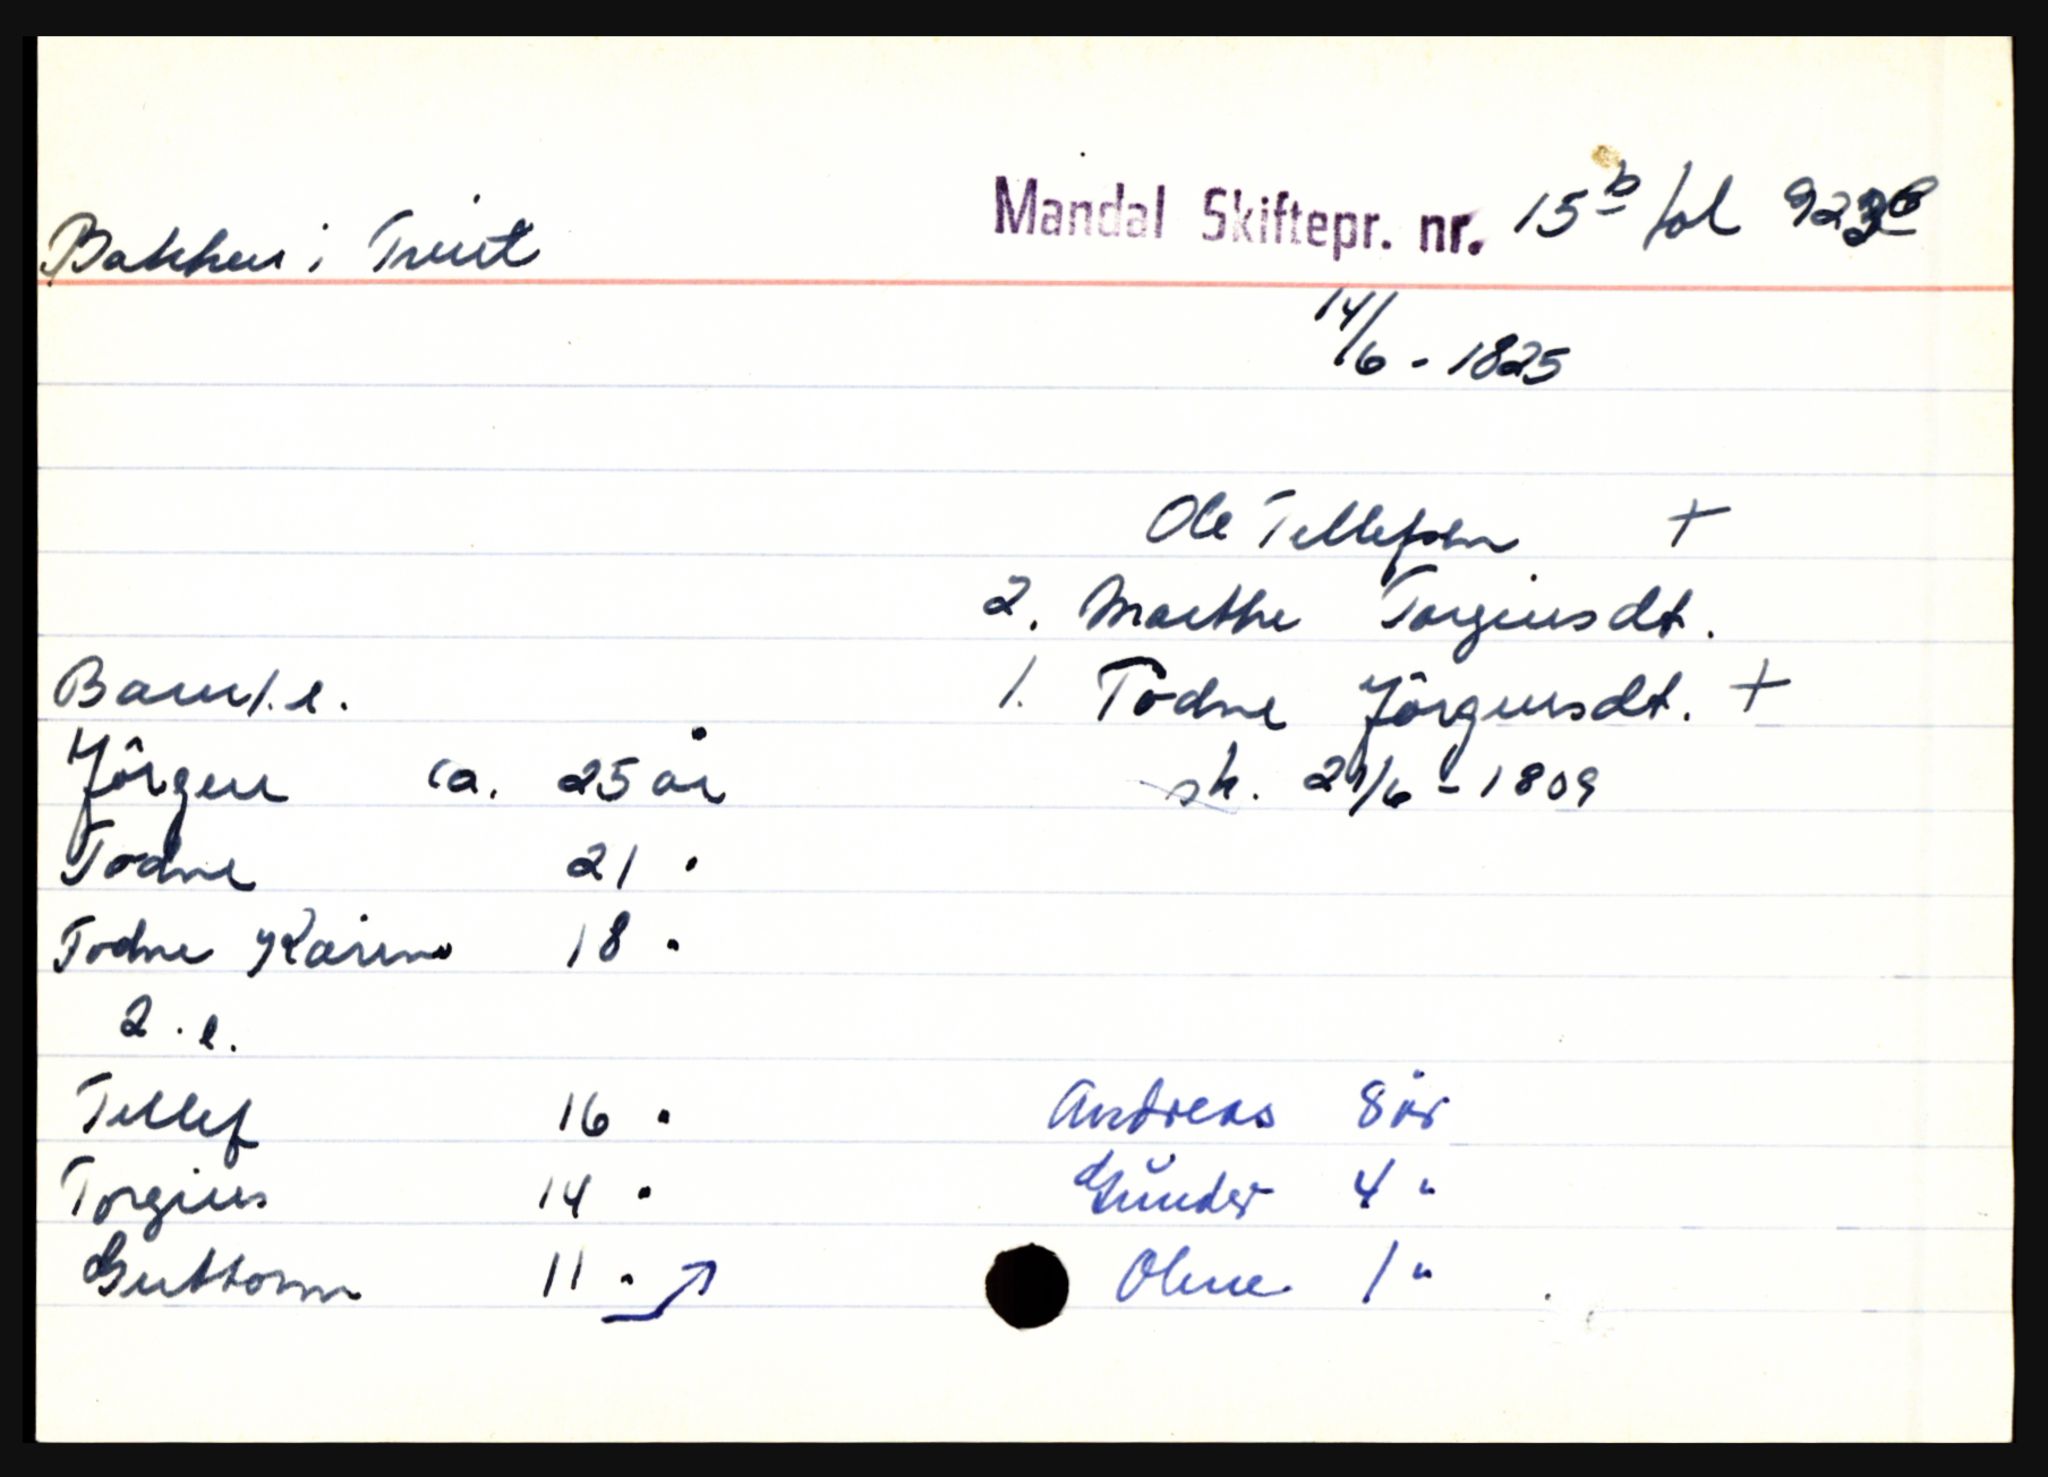 Mandal Skiftepr. nr. 15b fol
Bakken i Treist
14/6 - 1825
Ole Tellefsen +
2. Marthe Torgiusdt.
Barn 1. e. 1. Todne Jörgensdt. +
Jörgen ca. 25 år sk. 21/6 - 1809
Todne 21 "
Todne Karine 18 "
2. e.
Tellef 16 " Andreas 8 år
Torgius 14 " Gunder 4 "
Guttorm 11 " Olene 1 "